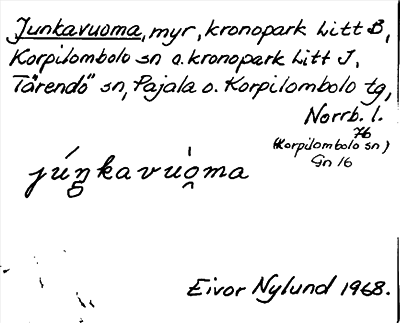 Junkavuoma, myr, kronopark Litt B,
Korpilombolo sn o. kronopark Litt I,
Tärendö sn, Pajala o. Korpilombolo tg,
Norrb. l.
76
(Korpilombolo sn)
Gn 16
júŋkavu̯òma
Eivor Nylund 1968.